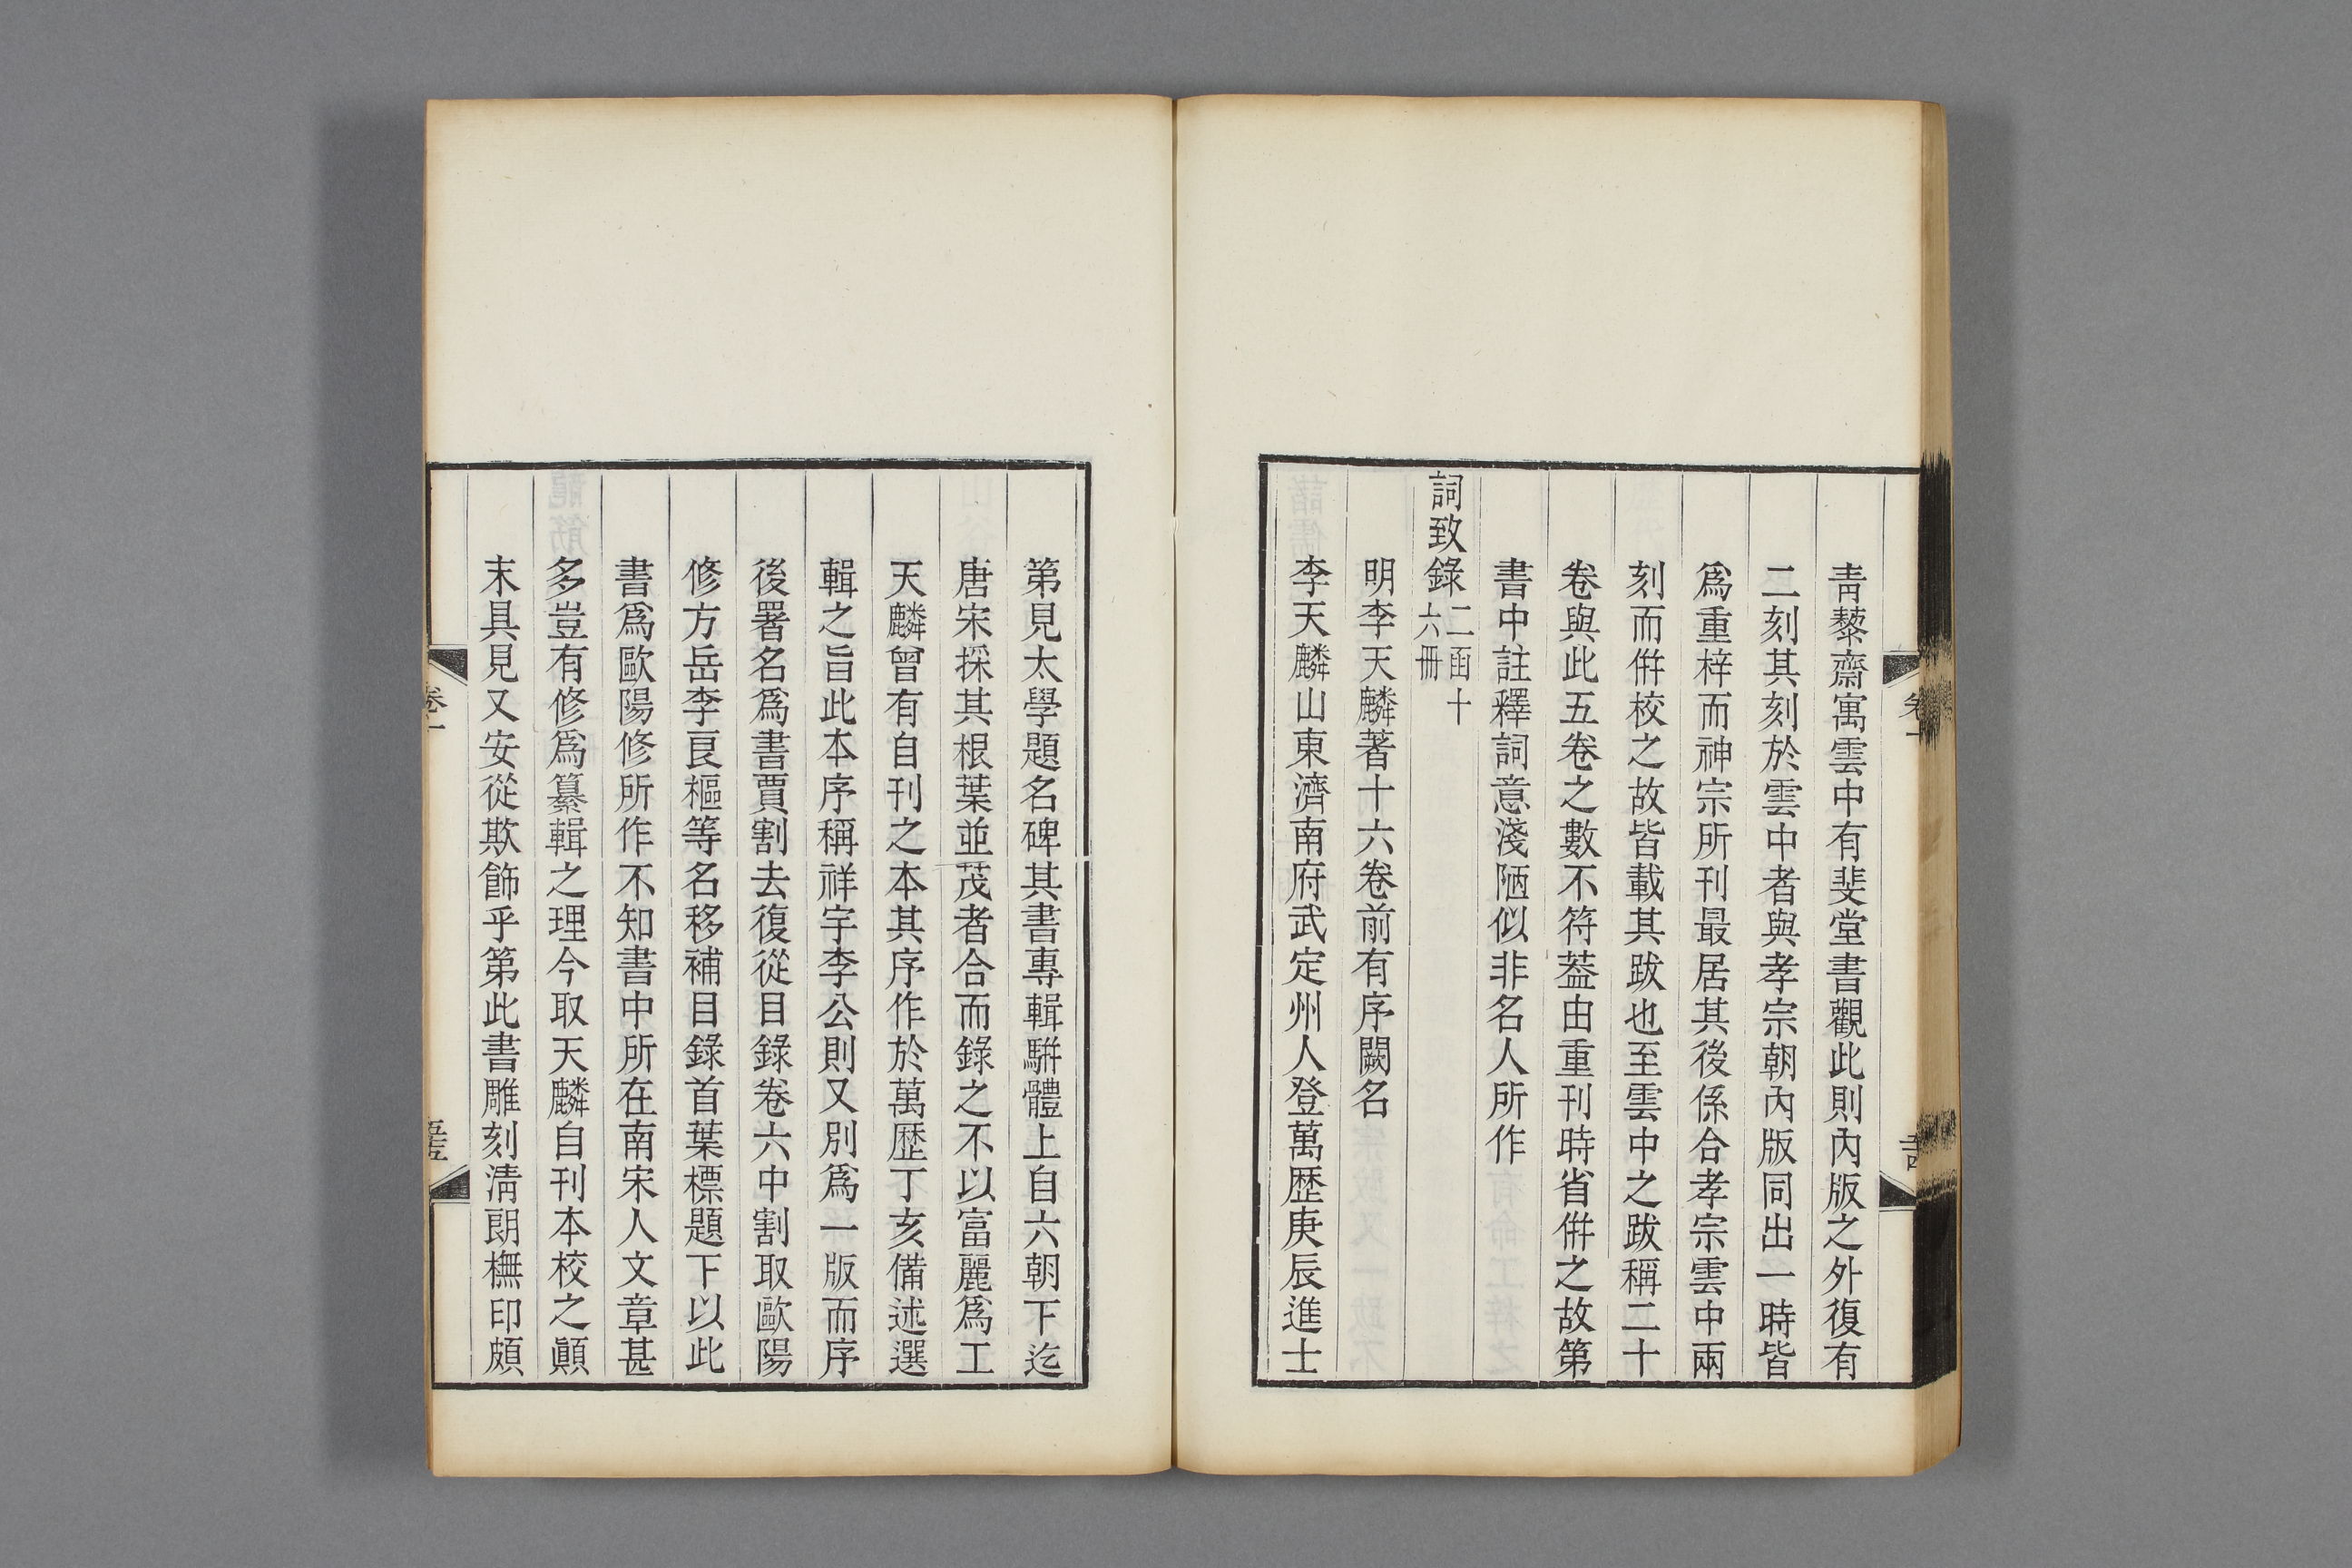 靑藜齋寓雲中有斐堂書觀此則內版之外復有
二刻其刻於雲中者與孝宗朝內版同出一時皆
爲重梓而神宗所刊最居其後係合孝宗雲中兩
刻而倂校之故皆載其跋也至雲中之跋稱二十
卷與此五卷之數不符葢由重刊時省倂之故第
書中註釋詞意淺陋似非名人所作
詞致錄二函十六冊
明李天麟著十六卷前有序闕名
李天麟山東濟南府武定州人登萬歷庚辰進士
第見太學題名碑其書專輯騈體上自六朝下迄
唐宋採其根葉並茂者合而錄之不以富麗爲工
天麟曾有自刊之本其序作於萬歷丁亥備述選
輯之旨此本序稱祥宇李公則又別爲一版而序
後署名爲書賈割去復從目錄卷六中割取歐陽
修方岳李良樞等名移補目錄首葉標題下以此
書爲歐陽修所作不知書中所在南宋人文章甚
多豈有修爲纂輯之理今取天麟自刊本校之顚
末具見又安從欺飾乎第此書雕刻清朗橅印頗
卷一